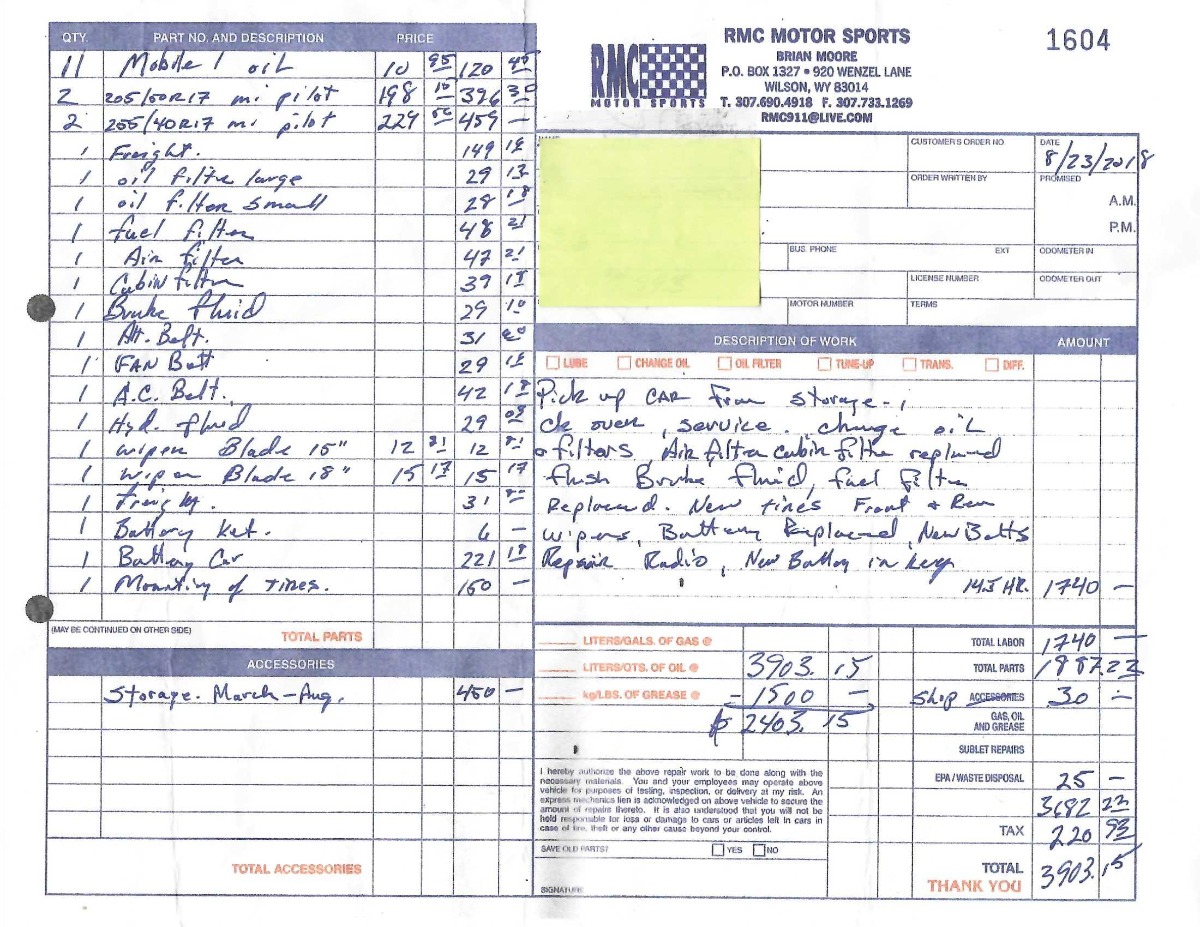 QTY. PART NO. AND DESCRIPTION PRICE
11 Mobile 1 oil 10 95 120 45
2 205/50R17 mi pilot 198 15 396 30
2 255/40R17 mi pilot 229 50 459 —
1 Freight. 149 18
1 oil filter large 29 13
1 oil filter small 28 18
1 fuel filter 48 21
1 Air filter 47 21
1 Cabin filter 39 18
1 Brake fluid 29 10
1 Alt. Belt. 31
1 FAN Belt 29 18
1 A.C. Belt., 42 18
1 Hyd. fluid 29 08
1 wiper Blade 15" 12 81 12 81
1 wiper Blade 18" 15 17 15 17
1 Freight. 31
1 Battery Key. 6 —
1 Battery Car 221 18
1 Mounting of tires. 150 —
(MAY BE CONTINUED ON OTHER SIDE) TOTAL PARTS
ACCESSORIES
Storage. March-Aug. 450 —
TOTAL ACCESSORIES
RMC
MOTOR SPORTS
RMC MOTOR SPORTS
BRIAN MOORE
P.O. BOX 1327 • 920 WENZEL LANE
WILSON, WY 83014
T. 307.690.4918 F. 307.733.1269
RMC911@LIVE.COM
1604
CUSTOMER'S ORDER NO
DATE
8/23/2018
ORDER WRITTEN BY
PROMISED
A.M.
P.M.
BUS. PHONE EXT
ODOMETER IN
LICENSE NUMBER
ODOMETER OUT
MOTOR NUMBER
TERMS
DESCRIPTION OF WORK AMOUNT
LUBE CHANGE OIL OIL FILTER TUNE-UP TRANS. DIFF.
Pick up CAR From storage.,
ck over, service. change oil
& filters, Air filter cabin filter replaced
flush Brake fluid, fuel filter
Replaced. New tires Front & Rear
wipers, Battery Replaced, New Belts
Repair Radio, New Battery in key
14.5 HR. 1740 —
LITERS/GALS. OF GAS @
LITERS/QTS. OF OIL @ 3903. 15
kg/LBS. OF GREASE @ - 1500 —
$ 2403. 15
TOTAL LABOR 1740 —
TOTAL PARTS 1887.22
Shop ACCESSORIES 30 —
GAS, OIL
AND GREASE
SUBLET REPAIRS
EPA / WASTE DISPOSAL 25 —
3682 22
TAX 220 93
TOTAL 3903.15
THANK YOU
I hereby authorize the above repair work to be done along with the
necessary materials. You and your employees may operate above
vehicle for purposes of testing, inspection, or delivery at my risk. An
express mechanics lien is acknowledged on above vehicle to secure the
amount of repairs thereto. It is also understood that you will not be
held responsible for loss or damage to cars or articles left in cars in
case of fire, theft or any other cause beyond your control.
SAVE OLD PARTS? YES NO
SIGNATURE